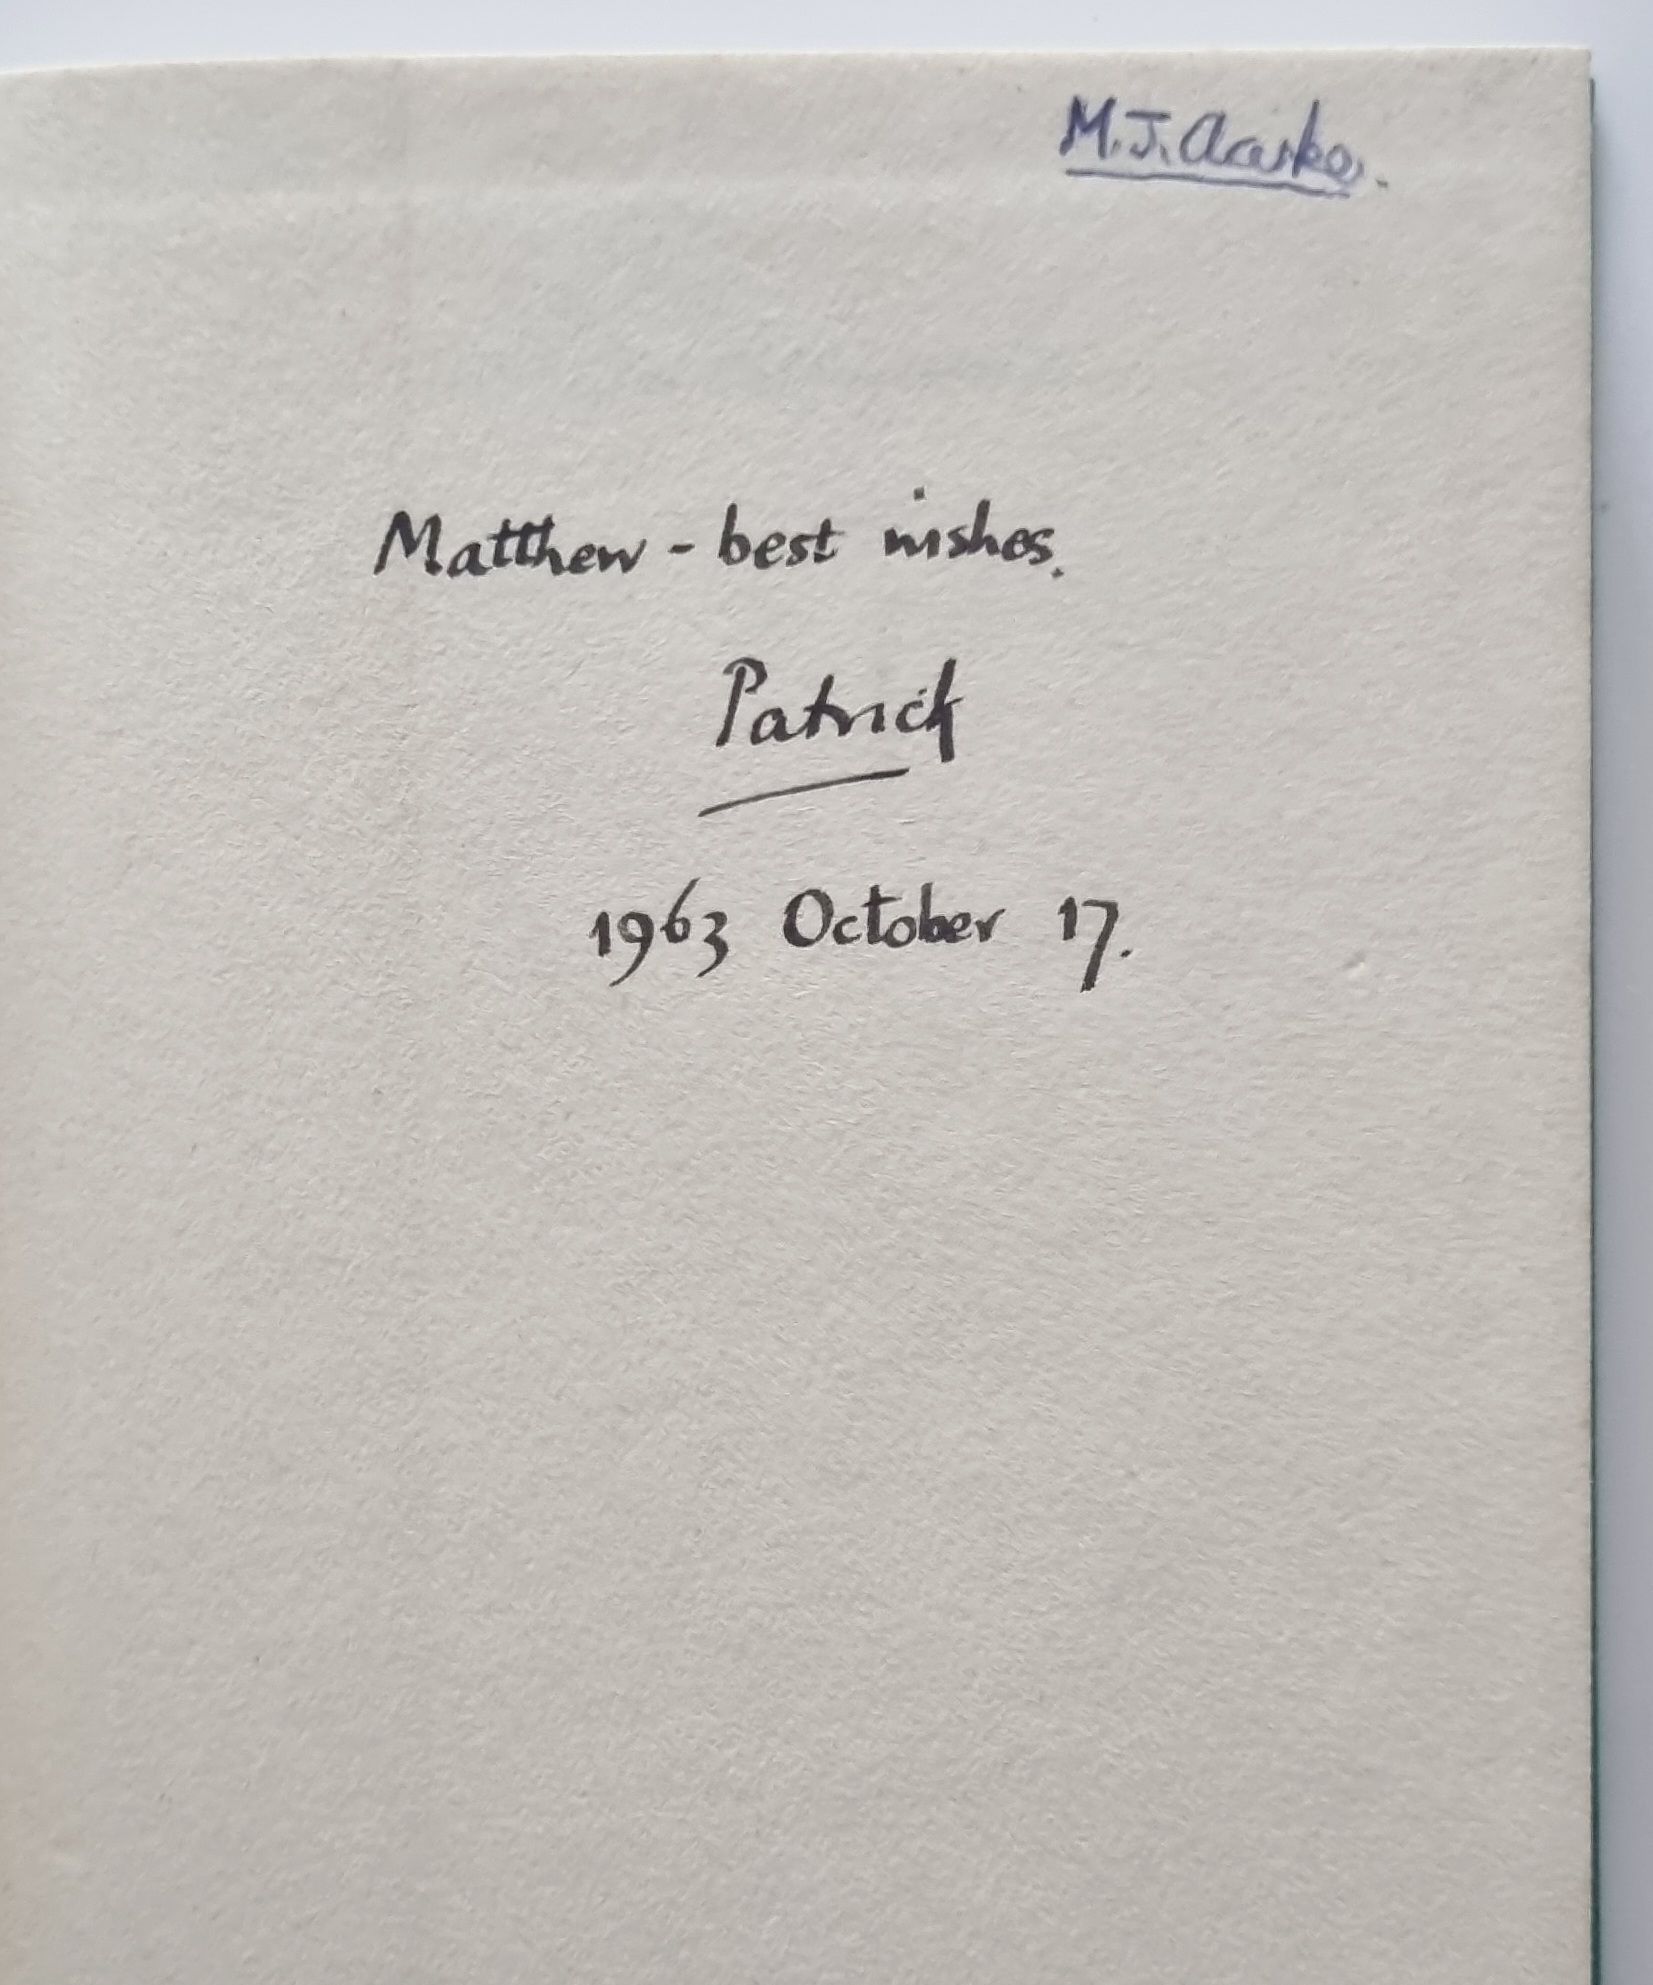 M.J. Clarke.
Matthew - best wishes.
Patrick
1963 October 17.